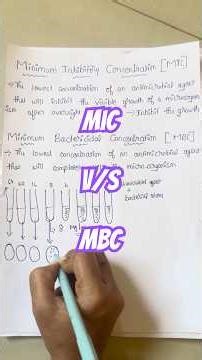 Minimum Inhibitory Concentration [MIC]
→ The lowest concentration of an antimicrobial agent
that will inhibit the visible growth of a microorgan
ism after overnight Inhibit the growth
MIC
Minimum Bactericidal Concentration [MBC]
→ The lowest concentration of an antimicrobial agent
that will the micro-organism
V/S
64 32 16 8
MBC
+
8